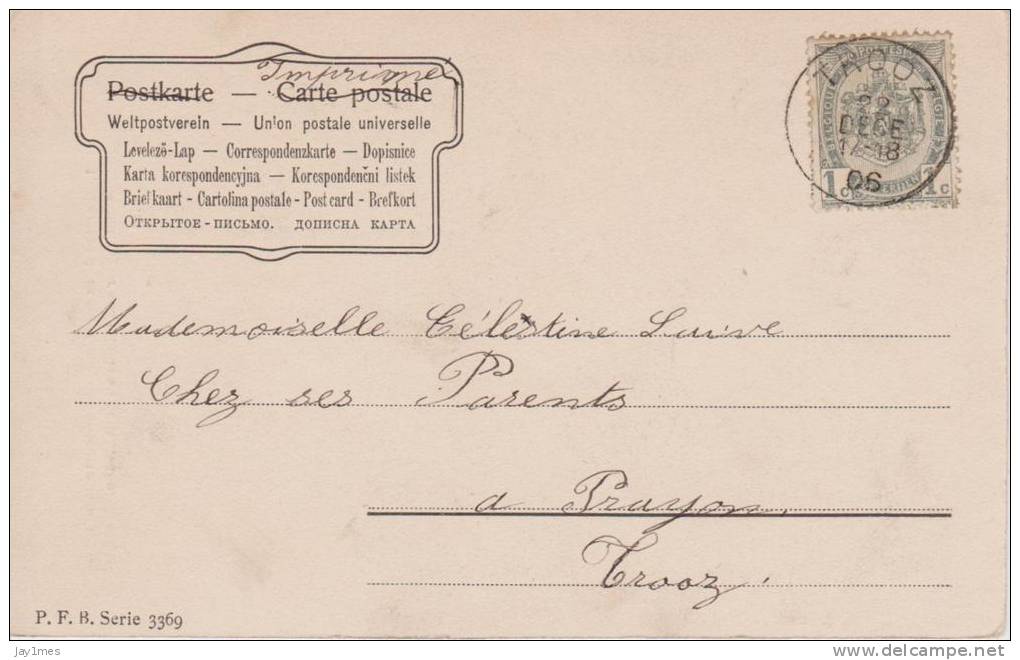 Imprimé
Postkarte — Carte postale
Weltpostverein — Union postale universelle
Levelező-Lap — Correspondenzkarte — Dopisnice
Karta korespondencyjna — Korespondenční listek
Briefkaart - Cartolina postale - Post card - Brefkort
Открытое-письмо. дописна карта
TROOZ
28
DECE
17-18
06
BELGIQUE POSTES BELGIË
1c 1c
Mademoiselle Célestine Laive
Chez ses Parents
a Prayon.
Trooz.
P. F. B. Serie 3369
Jay1mes
delcampe.net